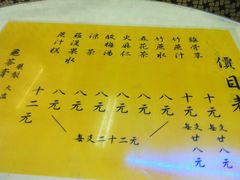 價目表
雞骨草 十元 每支廿八元
竹蔗汁 十元 每支廿八元
五花茶 八元
火麻仁 八元
酸梅湯 八元
涼茶 八元
羅漢果水 八元
蔗汁糕 八元
每支二十二元
龜苓膏 十二元